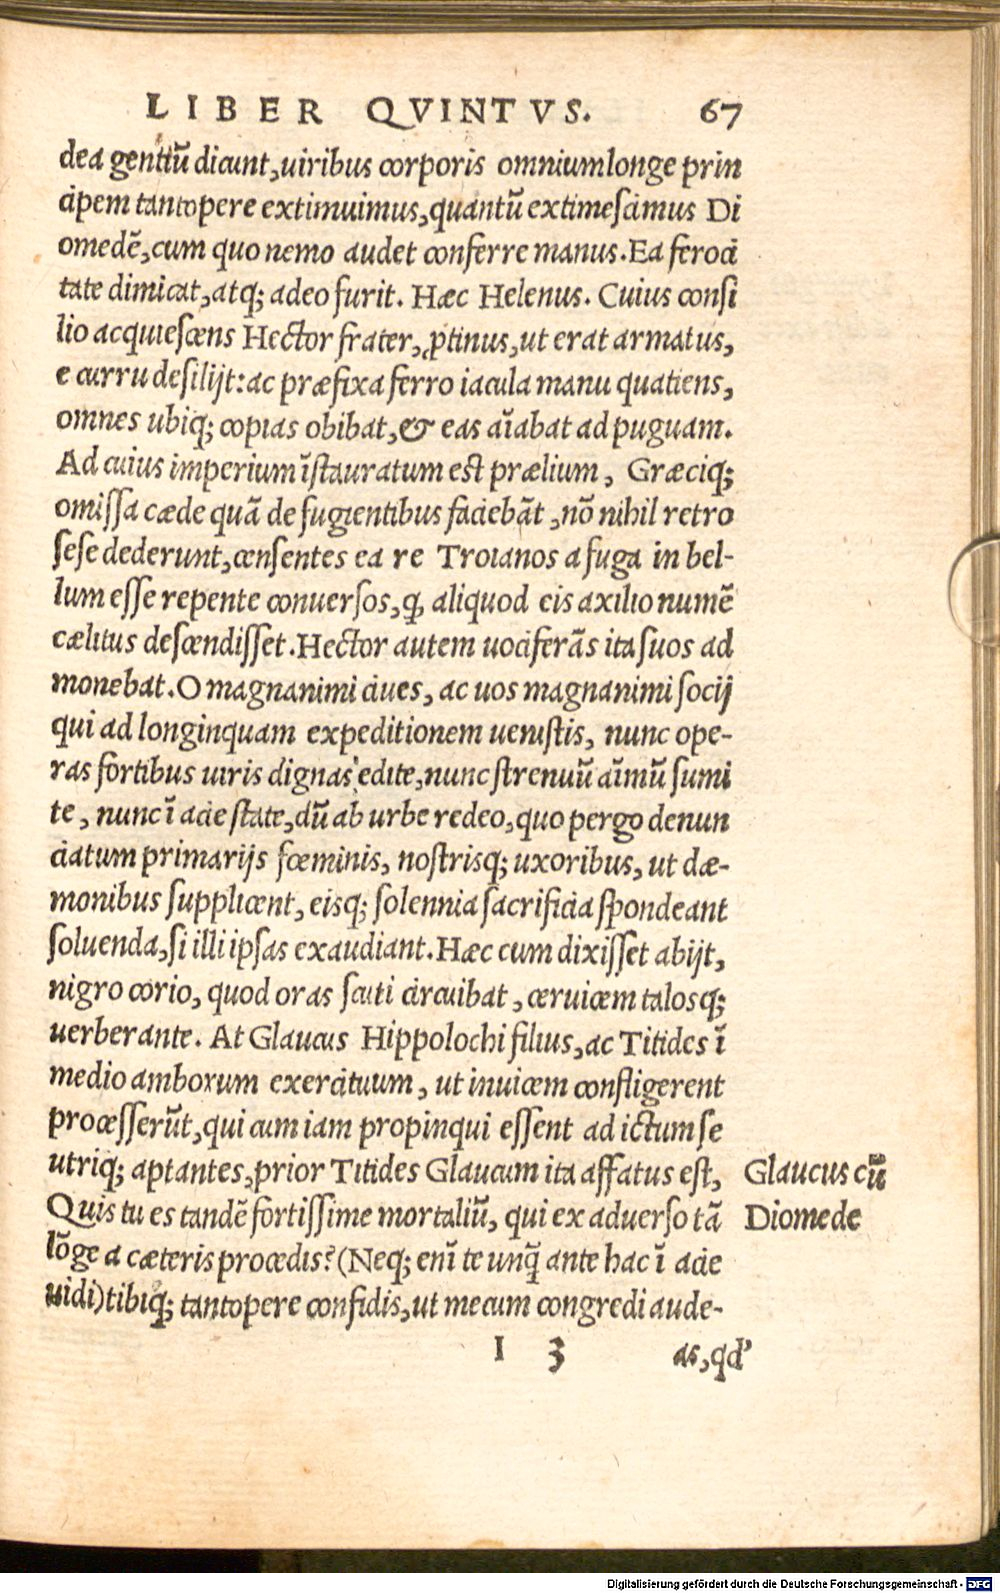 LIBER QVINTVS. 67
dea gentiū dicunt, uiribus corporis omnium longe prin
cipem tantopere extimuimus, quantū extimescimus Di
omedē, cum quo nemo audet conferre manus. Ea feroci
tate dimicat, atq; adeo furit. Hæc Helenus. Cuius consi
lio acquiescens Hector frater, ꝓtinus, ut erat armatus,
e curru desilijt: ac præfixa ferro iacula manu quatiens,
omnes ubiq; copias obibat, & eas aīabat ad puguam.
Ad cuius imperium īstauratum est prælium, Græciq;
omissa cæde quā de fugientibus faciebāt, nō nihil retro
sese dederunt, censentes ea re Troianos a fuga in bel-
lum esse repente conuersos, ꝙ aliquod eis axilio numē
cælitus descendisset. Hector autem uociferās ita suos ad
monebat. O magnanimi ciues, ac uos magnanimi socij
qui ad longinquam expeditionem uenistis, nunc ope-
ras fortibus uiris dignas edite, nunc strenuū aīmū sumi
te, nunc ī acie state, dū ab urbe redeo, quo pergo denun
ciatum primarijs fœminis, nostrisq; uxoribus, ut dæ-
monibus supplicent, eisq; solennia sacrificia spondeant
soluenda, si illi ipsas exaudiant. Hæc cum dixisset abijt,
nigro corio, quod oras scuti circuibat, ceruicem talosq;
uerberante. At Glaucus Hippolochi filius, ac Titides ī
medio amborum exercituum, ut inuicem confligerent
processerūt, qui cum iam propinqui essent ad ictum se
utriq; aptantes, prior Titides Glaucum ita affatus est,
Glaucus cū
Quis tu es tandē fortissime mortaliū, qui ex aduerso tā
Diomede
lōge a cæteris procedis? (Neq; enī te unq̄ ante hac ī acie
uidi) tibiq; tantopere confidis, ut mecum congredi aude-
I 3 as, qd'
Digitalisierung gefördert durch die Deutsche Forschungsgemeinschaft - DFG